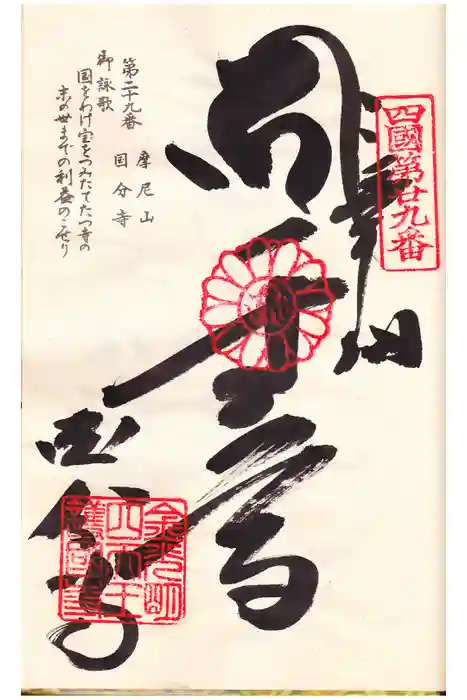 四國第廿九番
奉納
国分寺
金光明
四天王
第二十九番 摩尼山
国分寺
御詠歌
国をわけ宝をつみたてたつ寺の
末の世までの利益のこせり